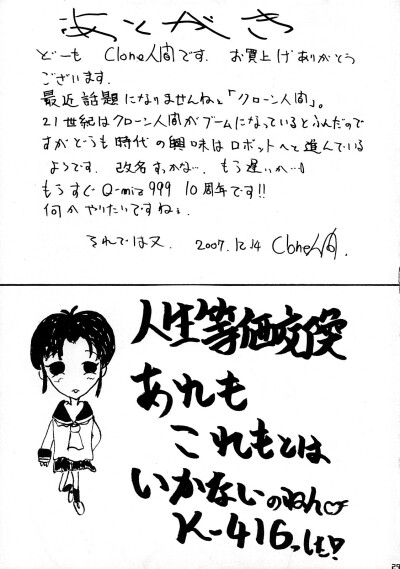 あとがき
どーも Clone人間です。お買上げありがとう
ございます。
最近話題になりませんねぇ「クローン人間」。
21世紀はクローン人間がブームになっているとふんだので
すがどうも時代の興味はロボットへと進んでいる
ようです。改名すっかな…。もう遅いか…
もうすぐ Q-miz 999 10周年です!!
何かやりたいですねぇ。
それでは又。 2007.12.14 Clone人間.
人生等価交換
あれも
これもとは
いかないのねん
K-416っしも!
29